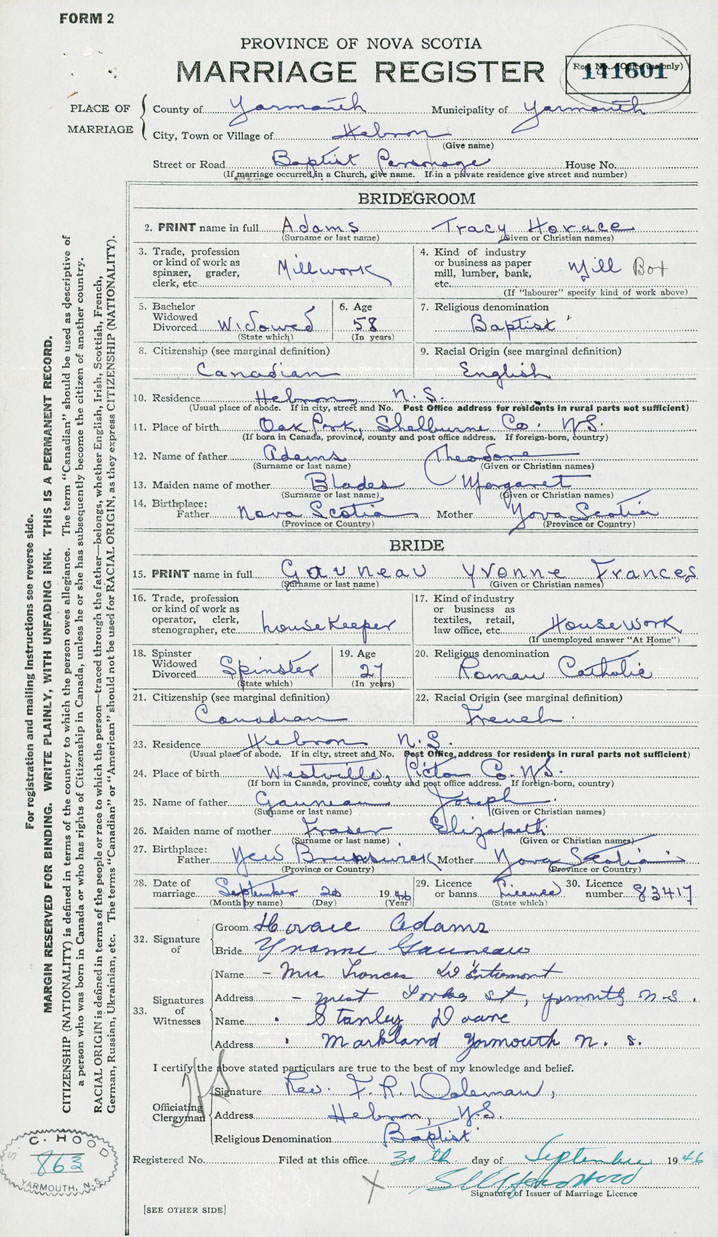 FORM 2
PROVINCE OF NOVA SCOTIA
MARRIAGE REGISTER
Reg. No. (Office use only)
141601
PLACE OF MARRIAGE
County of Yarmouth Municipality of Yarmouth
City, Town or Village of Hebron
(Give name)
Street or Road Baptist Personage House No.
(If marriage occurred in a Church, give name. If in a private residence give street and number)
BRIDEGROOM
2. PRINT name in full Adams Tracy Horace
(Surname or last name) (Given or Christian names)
3. Trade, profession or kind of work as spinner, grader, clerk, etc. Millwork
4. Kind of industry or business as paper mill, lumber, bank, etc. Mill Box
(If "labourer" specify kind of work above)
5. Bachelor Widowed Divorced Widowed
(State which)
6. Age 58
(In years)
7. Religious denomination
Baptist
8. Citizenship (see marginal definition)
Canadian
9. Racial Origin (see marginal definition)
English
10. Residence Hebron N.S.
(Usual place of abode. If in city, street and No. Post Office address for residents in rural parts not sufficient)
11. Place of birth Oak Park, Shelburne Co. N.S.
(If born in Canada, province, county and post office address. If foreign-born, country)
12. Name of father Adams Theodore
(Surname or last name) (Given or Christian names)
13. Maiden name of mother Blades Margaret
(Surname or last name) (Given or Christian names)
14. Birthplace: Father Nova Scotia Mother Nova Scotia
(Province or Country) (Province or Country)
BRIDE
15. PRINT name in full Gauneau Yvonne Frances
(Surname or last name) (Given or Christian names)
16. Trade, profession or kind of work as operator, clerk, stenographer, etc. housekeeper
17. Kind of industry or business as textiles, retail, law office, etc. Housework
(If unemployed answer "At Home")
18. Spinster Widowed Divorced Spinster
(State which)
19. Age 27
(In years)
20. Religious denomination
Roman Catholic
21. Citizenship (see marginal definition)
Canadian
22. Racial Origin (see marginal definition)
French.
23. Residence Hebron N.S.
(Usual place of abode. If in city, street and No. Post Office address for residents in rural parts not sufficient)
24. Place of birth Westville, Picton Co. N.S.
(If born in Canada, province, county and post office address. If foreign-born, country)
25. Name of father Gauneau Joseph
(Surname or last name) (Given or Christian names)
26. Maiden name of mother Fraser Elizabeth
(Surname or last name) (Given or Christian names)
27. Birthplace: Father New Brunswick Mother Nova Scotia
(Province or Country) (Province or Country)
28. Date of marriage September 20 1946
(Month by name) (Day) (Year)
29. Licence or banns Licence
(State which)
30. Licence number 83417
32. Signature of
Groom Horace Adams
Bride Yvonne Gauneau
33. Signatures of Witnesses
Name - Mrs Frances D'Entremont
Address - Forbes St, Yarmouth N.S.
Name Stanley Doane
Address Markland Yarmouth N. S.
I certify the above stated particulars are true to the best of my knowledge and belief.
Officiating Clergyman
Signature Rev. F. R.
Address Hebron, N.S.
Religious Denomination Baptist
Registered No. Filed at this office 30th day of September 1946
Signature of Issuer of Marriage Licence
[SEE OTHER SIDE]
For registration and mailing instructions see reverse side.
MARGIN RESERVED FOR BINDING. WRITE PLAINLY, WITH UNFADING INK. THIS IS A PERMANENT RECORD.
CITIZENSHIP (NATIONALITY) is defined in terms of the country to which the person owes allegiance. The term "Canadian" should be used as descriptive of
a person who was born in Canada or who has rights of Citizenship in Canada, unless he or she has subsequently become the citizen of another country.
RACIAL ORIGIN is defined in terms of the people or race to which the person—traced through the father—belongs, whether English, Irish, Scottish, French,
German, Russian, Ukrainian, etc. The terms "Canadian" or "American" should not be used for RACIAL ORIGIN, as they express CITIZENSHIP (NATIONALITY).
C. HOOD
863
YARMOUTH, N.S.